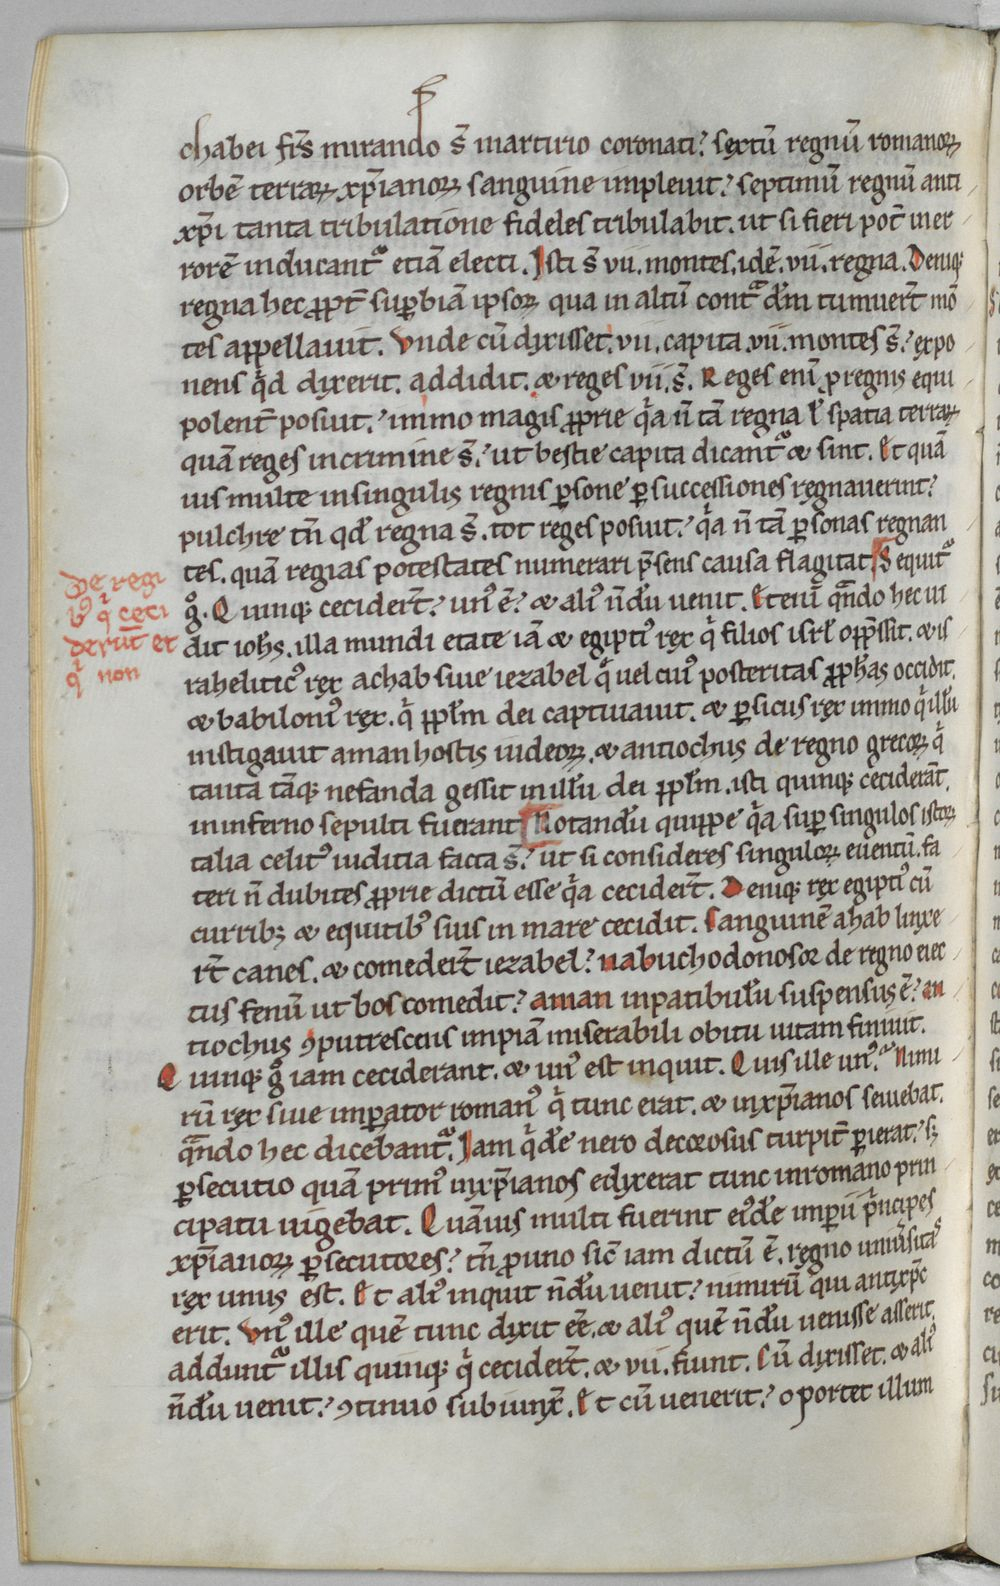 chabei fr̄s mirando s̄ martirio coronati. sextū regnū romanoꝝ
orbē terraꝝ xp̄ianoꝝ sanguine impleuit. septimū regnū anti
xp̄i tanta tribulatione fideles tribulabit. ut si fieri pot̄ in er
rorē inducant᷑ etiā electi. Isti s̄ vii. montes. idē. vii. regna. Deniqꝫ
regna hec ꝓpt̄ suꝑbiā ipsoꝝ qua in altū contᷓ dm̄ tumuer̄t mō
tes appellauit. Vnde cū dixisset. vii. capita. vii. montes s̄. expo
nens qͥd dixerit. addidit. ⁊ reges vii. s̄. Reges enī ꝓ regnis equi
polent̄ posuit. immo magis ꝓprie qͥa n̄ tā regna ł spatia terraꝝ
quā reges in crimine s̄. ut bestie capita dicant᷑ ⁊ sint. Et quā
uis multe in singulis regnis ꝑsone ꝑ successiones regnauerint.
pulchre tn̄ qđ regna s̄. tot reges posuit. qͥa n̄ tā ꝑsonas regnan
tes. quā regias potestates numerari p̄sens causa flagitat. Sequit᷑
g̊. Quinqꝫ cecider̄t. unꝰ ē. ⁊ aliꝰ n̄dū uenit. Etenī qᷓndo hec ui
dit ioh̄s. illa mundi etate iā ⁊ egiptiꝰ rex qͥ filios isrł opp̄ssit. ⁊ is
raheliticꝰ rex achab siue iezabel qͥ uel cuiꝰ posteritas ꝓph̄as occidit.
⁊ babiloniꝰ rex. qͥ ppłm dei captiuauit. ⁊ ꝑsicus rex immo qͥ illū
instigauit aman hostis iudeoꝝ. ⁊ antiochus de regno grecoꝝ qͥ
tanta tāqꝫ nefanda gessit in illū dei ppłm. isti quinqꝫ ceciderāt.
in inferno sepulti fuerant. Notandū quippe qͥa suꝑ singulos istoꝝ
talia celitꝰ iuditia facta s̄. ut si consideres singuloꝝ euentū. fa
teri n̄ dubites ꝓprie dictū esse qͥa cecider̄t. Deniqꝫ rex egiptiꝰ cū
curribꝫ ⁊ equitibꝰ suis in mare cecidit. Sanguinē ahab linxe
r̄t canes. ⁊ comeder̄t iezabel. nabuchodonosor de regno eiec
tus fenū ut bos comedit. aman in patibulū suspensus ē. an
tiochus ꝯputrescens impiā miserabili obitu uitam finiuit.
Quinqꝫ g̊ iam ceciderant. ⁊ unꝰ est inquit. Quis ille unꝰ. Nimi
rū rex siue imꝑator romanꝰ qͥ tunc erat. ⁊ in xp̄ianos seuiebat.
qᷓndo hec dicebant᷑. Iam qͥdē nero decorosus turpit̄ ꝑierat. sꝫ
ꝑsecutio quā primꝰ in xp̄ianos edixerat tunc in romano prin
cipatu uigebat. Quāuis multi fuerint eiꝰdē imꝑii pͥncipes
xp̄ianoꝝ ꝑsecutores. tn̄ ꝓ uno sic̄ iam dictū ē. regno uniuersitaᷤ
rex unus est. Et aliꝰ inquit n̄dū uenit. nimirū qui antixp̄c
erit. Vnꝰ ille quē tunc dixit eē. ⁊ aliꝰ quē n̄dū uenisse asserit.
addunt᷑ illis quinqꝫ qͥ cecider̄t. ⁊ vii. fiunt. Cū dixisset. ⁊ aliꝰ
n̄dū uenit. ꝯtinuo subiunx̄. Et cū uenerit. oportet illum
De regi
bꝰ qͥ ceci
derūt et
qͥ non